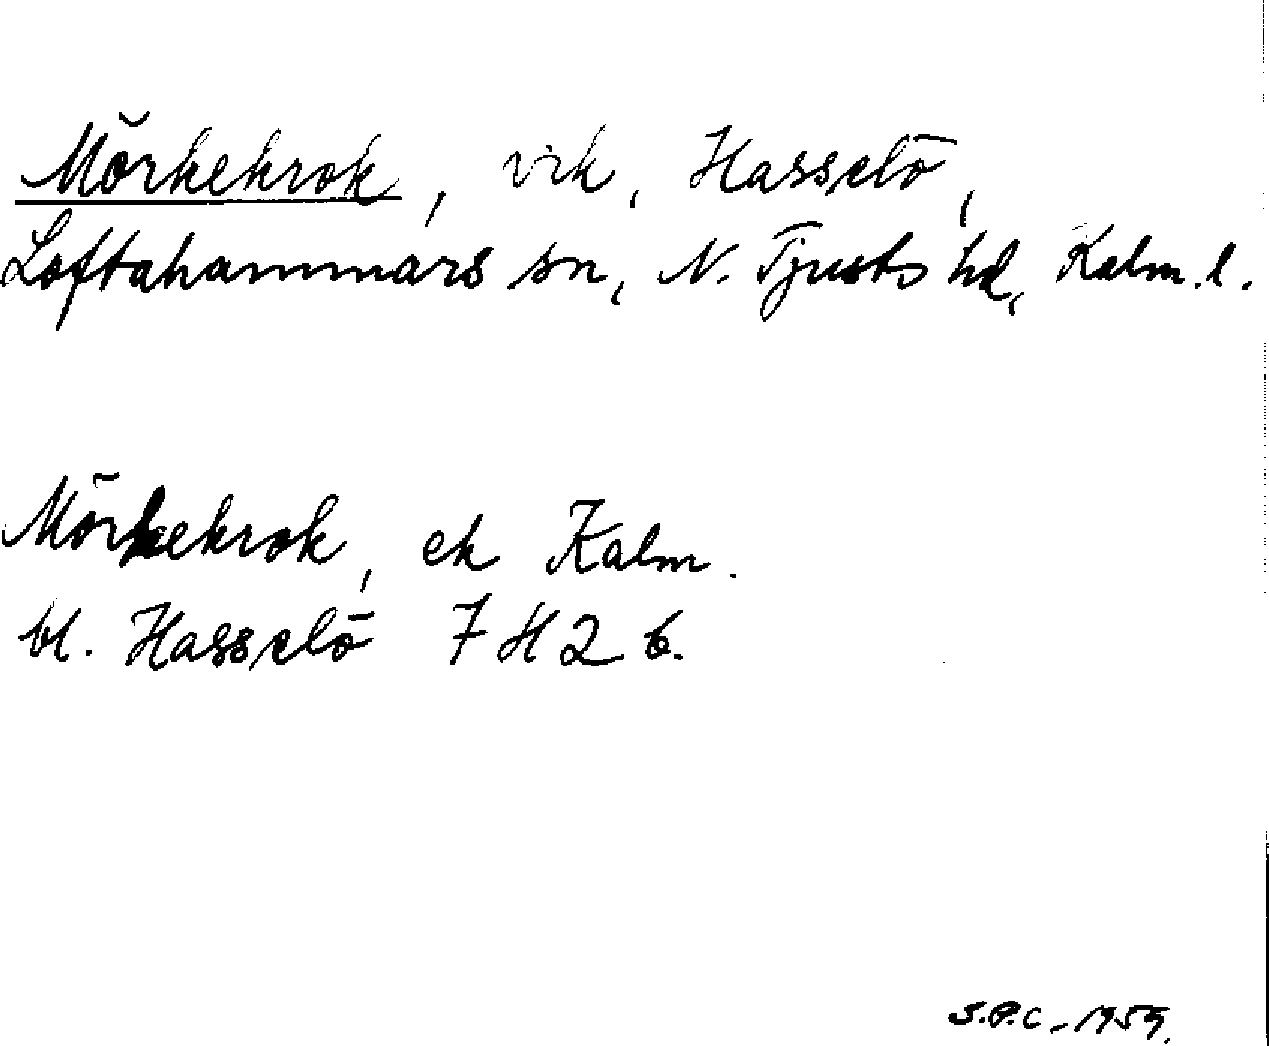 Mörkekrok, vik, Hasselö,
Loftahammars sn, N. Tjusts hd, Kalm. l.
Mörkekrok, ek Kalm.
bl. Hasselö 7 H 2 b.
S.P.C - 1959.